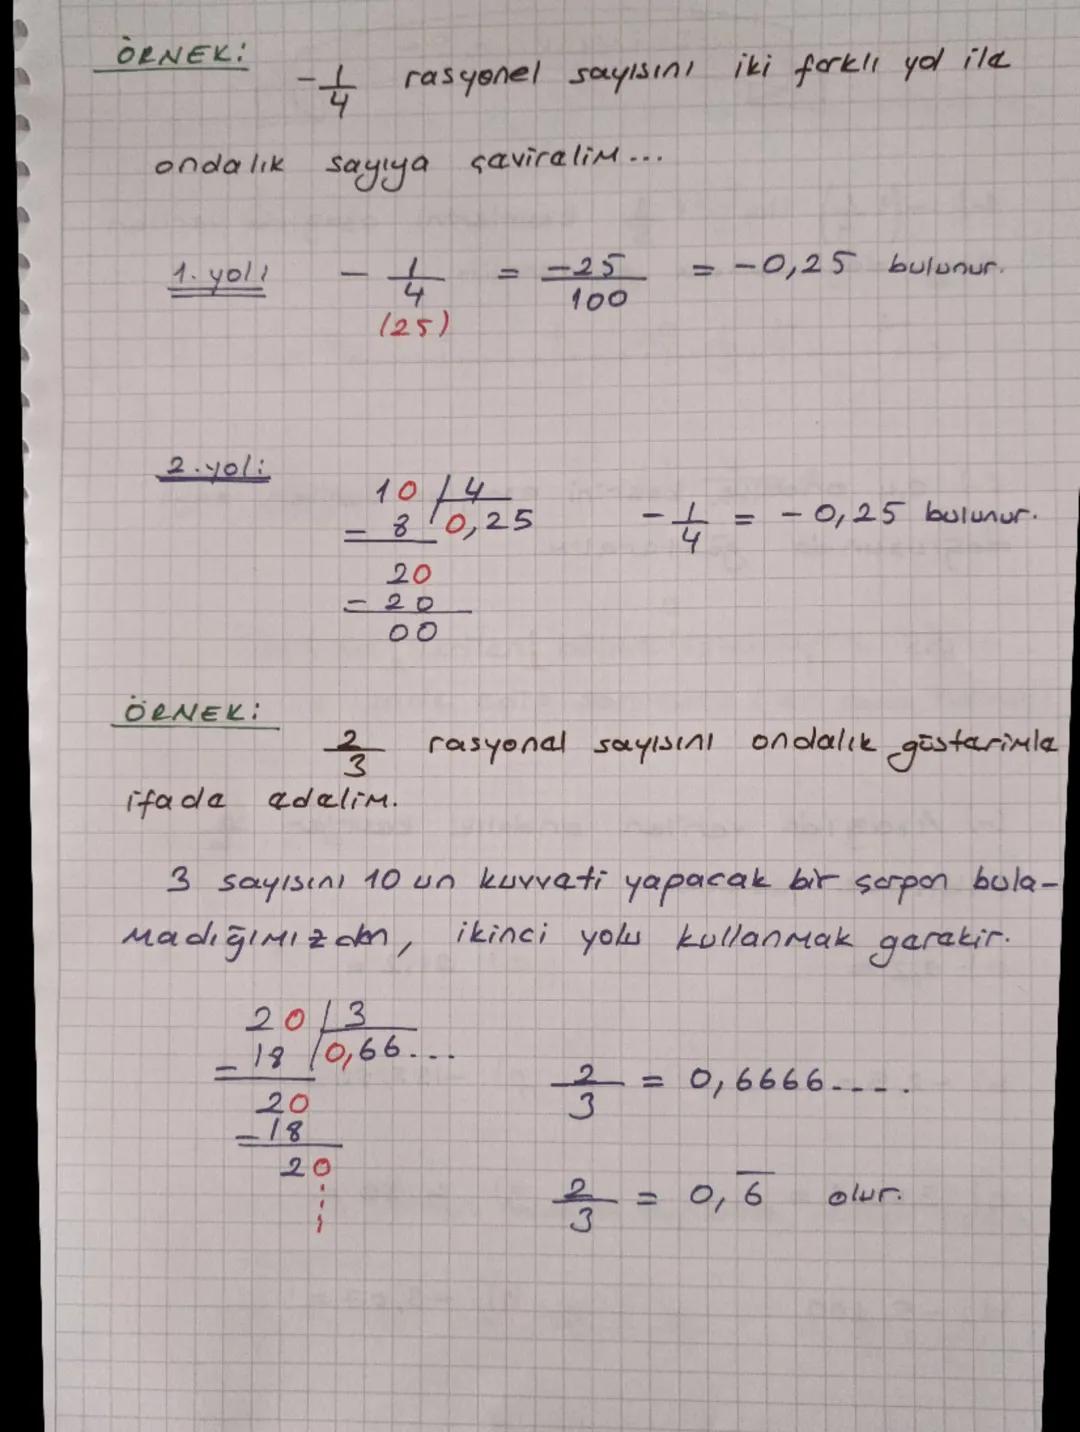 ÖRNEK:
-1/4 rasyonel sayısını iki farklı yol ile
ondalık sayıya çevirelim...
1. yol: - 1/4 = -25/100 = -0,25 bulunur.
(25)
2. yol:
10 | 4
- 8 | 0,25 - 1/4 = - 0,25 bulunur.
20
- 20
00
ÖRNEK:
2/3 rasyonel sayısını ondalık gösterimle
ifade edelim.
3 sayısını 10 un kuvveti yapacak bir çarpan bula-
madığımızdan, ikinci yolu kullanmak gerekir.
20 | 3
- 18 | 0,66...
20
- 18
20
2/3 = 0,6666....
2/3 = 0,6̅ olur.